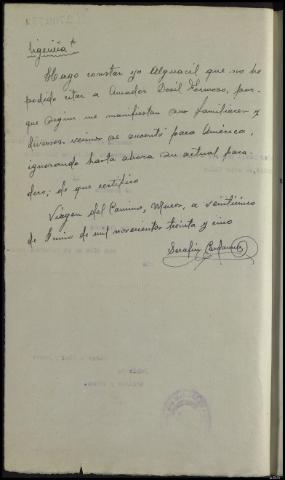 Diligencia
Hago constar yo Alguacil que no he
podido citar a Amador Dosil Formoso, por-
que según me manifiestan sus familiares y
diversos vecinos se ausentó para América,
ignorando hasta ahora su actual para
dero; de que certifico
Virgen del Camino, Muros, a veinticinco
de Junio de mil novecientos treinta y cinco
Serafín